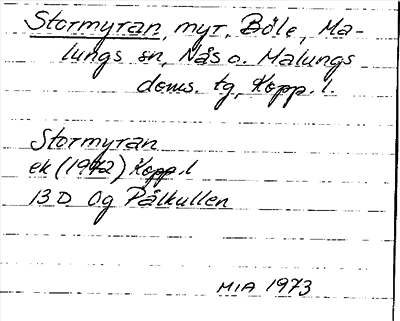 Stormyran, myr, Böle, Ma-
lungs sn, Nås o. Malungs
doms. tg, Kopp. l.
Stormyran
ek (1972) Kopp. l
13 D Og Pålkullen
MIA 1973